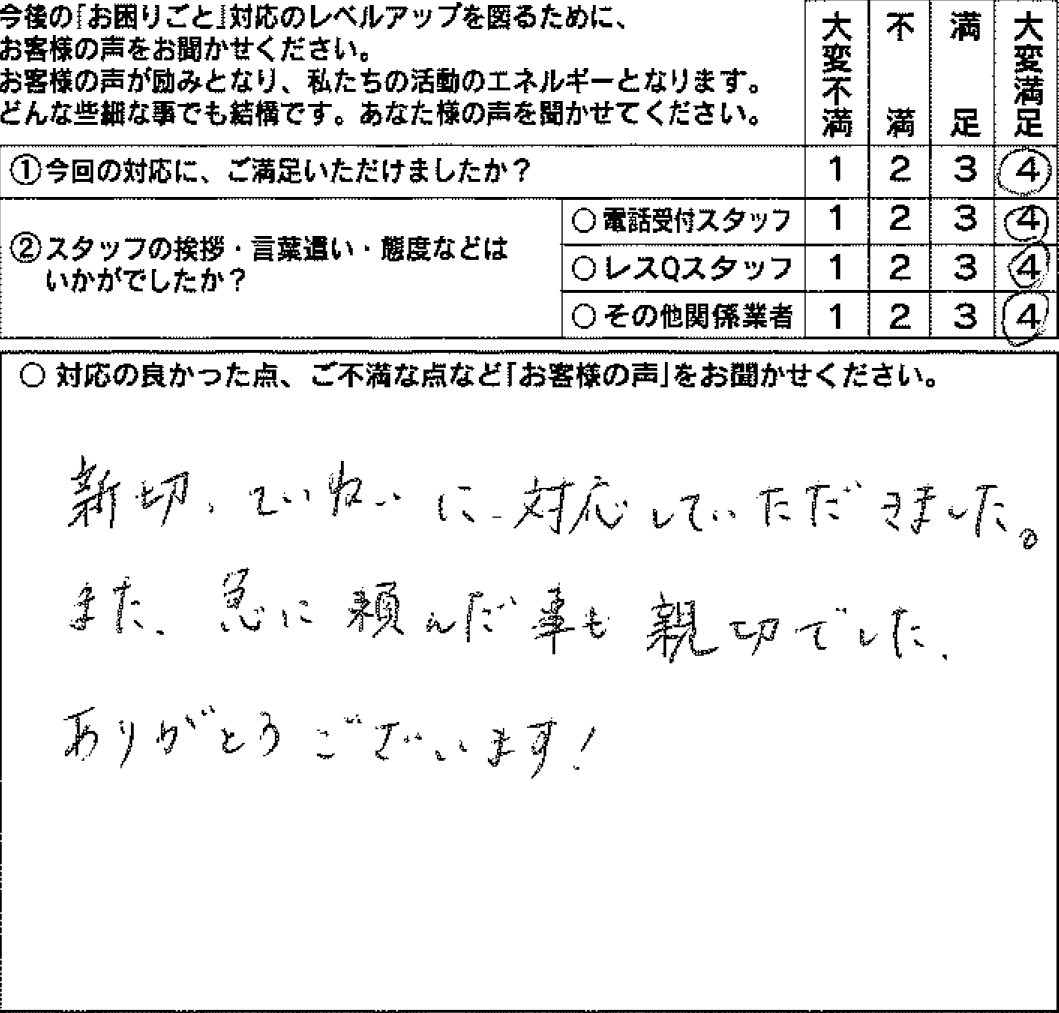 今後の「お困りごと」対応のレベルアップを図るために、
お客様の声をお聞かせください。
お客様の声が励みとなり、私たちの活動のエネルギーとなります。
どんな些細な事でも結構です。あなた様の声を聞かせてください。
大変不満 不満 満足 大変満足
①今回の対応に、ご満足いただけましたか？ 1 2 3 4
②スタッフの挨拶・言葉遣い・態度などは
いかがでしたか？
○電話受付スタッフ 1 2 3 4
○レスQスタッフ 1 2 3 4
○その他関係業者 1 2 3 4
○対応の良かった点、ご不満な点など「お客様の声」をお聞かせください。
新切、ていねいに対応していただきました。
また、急に頼んだ事も親切でした、
ありがとうございます！